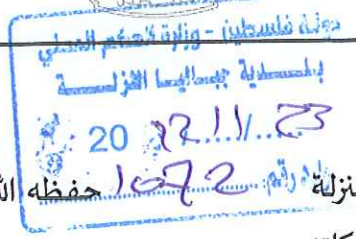 دولة فلسطين - وزارة الحكم المحلي
بلدية جباليا النزلة
20 22/11/23
نزلة رقم 1072 حفظه الله